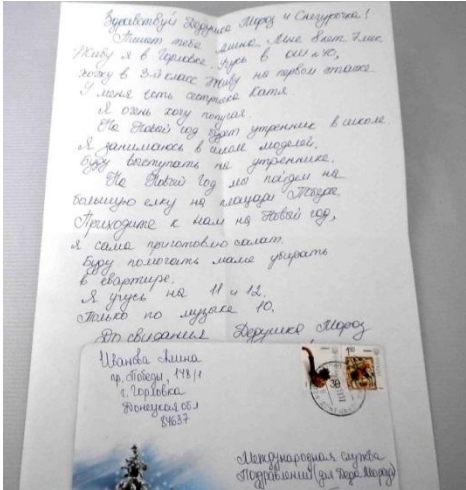 Здравствуй Дедушка Мороз и Снегурочка!
Пишет тебе Алина. Мне 8 лет 7 мес.
Живу я в Горловке. Учусь в ОШ №10,
хожу в 3-й класс. Живу на первом этаже.
У меня есть сестричка Катя
Я очень хочу попугая.
На Новый год будет утренник в школе.
Я занимаюсь в школе моделей.
Буду выступать на утреннике.
На Новый Год мы пойдем на
большую елку на площади Победа
Приходите к нам на Новый год,
я сама приготовлю салат.
Буду помогать маме убирать
в квартире.
Я учусь на 11 и 12.
Только по музыке 10.
До свидания Дедушка Мороз
Иванова Алина
пр. Победы, 148/1
г. Горловка
Донецкая обл
84637
Международная служба
Поздравлений (для Деда Мороза)